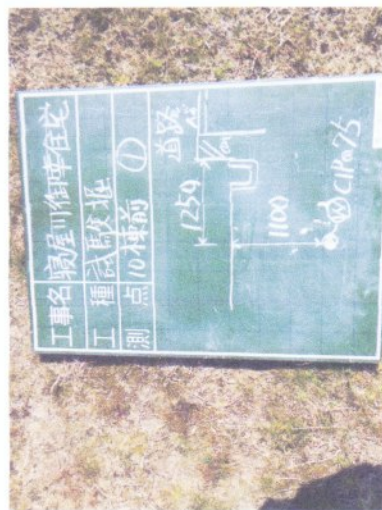 工事名 寝屋川御幸住宅
工種 試験堀
測点 10棟前 ①
道路
1250
1100